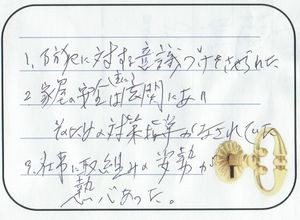 1、防犯に対する意識づけをさせられた
2 家屋の安全は玄関にあり
そのための対策指導がなされていた
3、仕事に取組みの姿勢が
熱心あった。